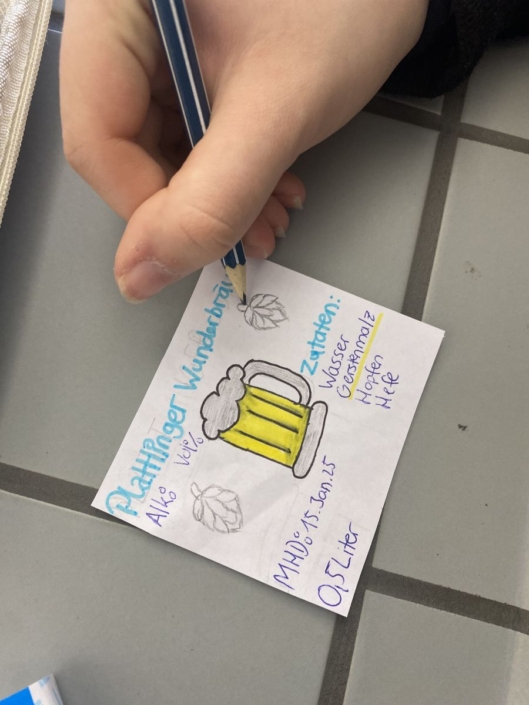 Plattlinger Wunderbräu
Alk: Vol%
Zutaten:
Wasser
Gerstenmalz
Hopfen
Hefe
MHD: 15.Jan.25
0,5 Liter